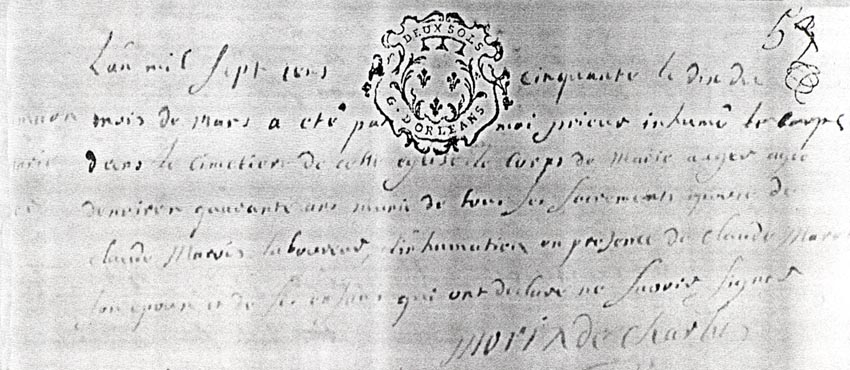 L'an mil sept cens cinquante le dix du
mois de mars a été par moi prieur inhumé le corps
dans le cimetiere de cette eglise le corps de Marie auger agée
denviron quarante ans munie de tous ses sacrements epouse de
claude laboureur, l'inhumation en presence de claude
son epoux et de ses enfans qui ont declare ne savoir signer
morin de
DEUX SOLS
G. D'ORLEANS